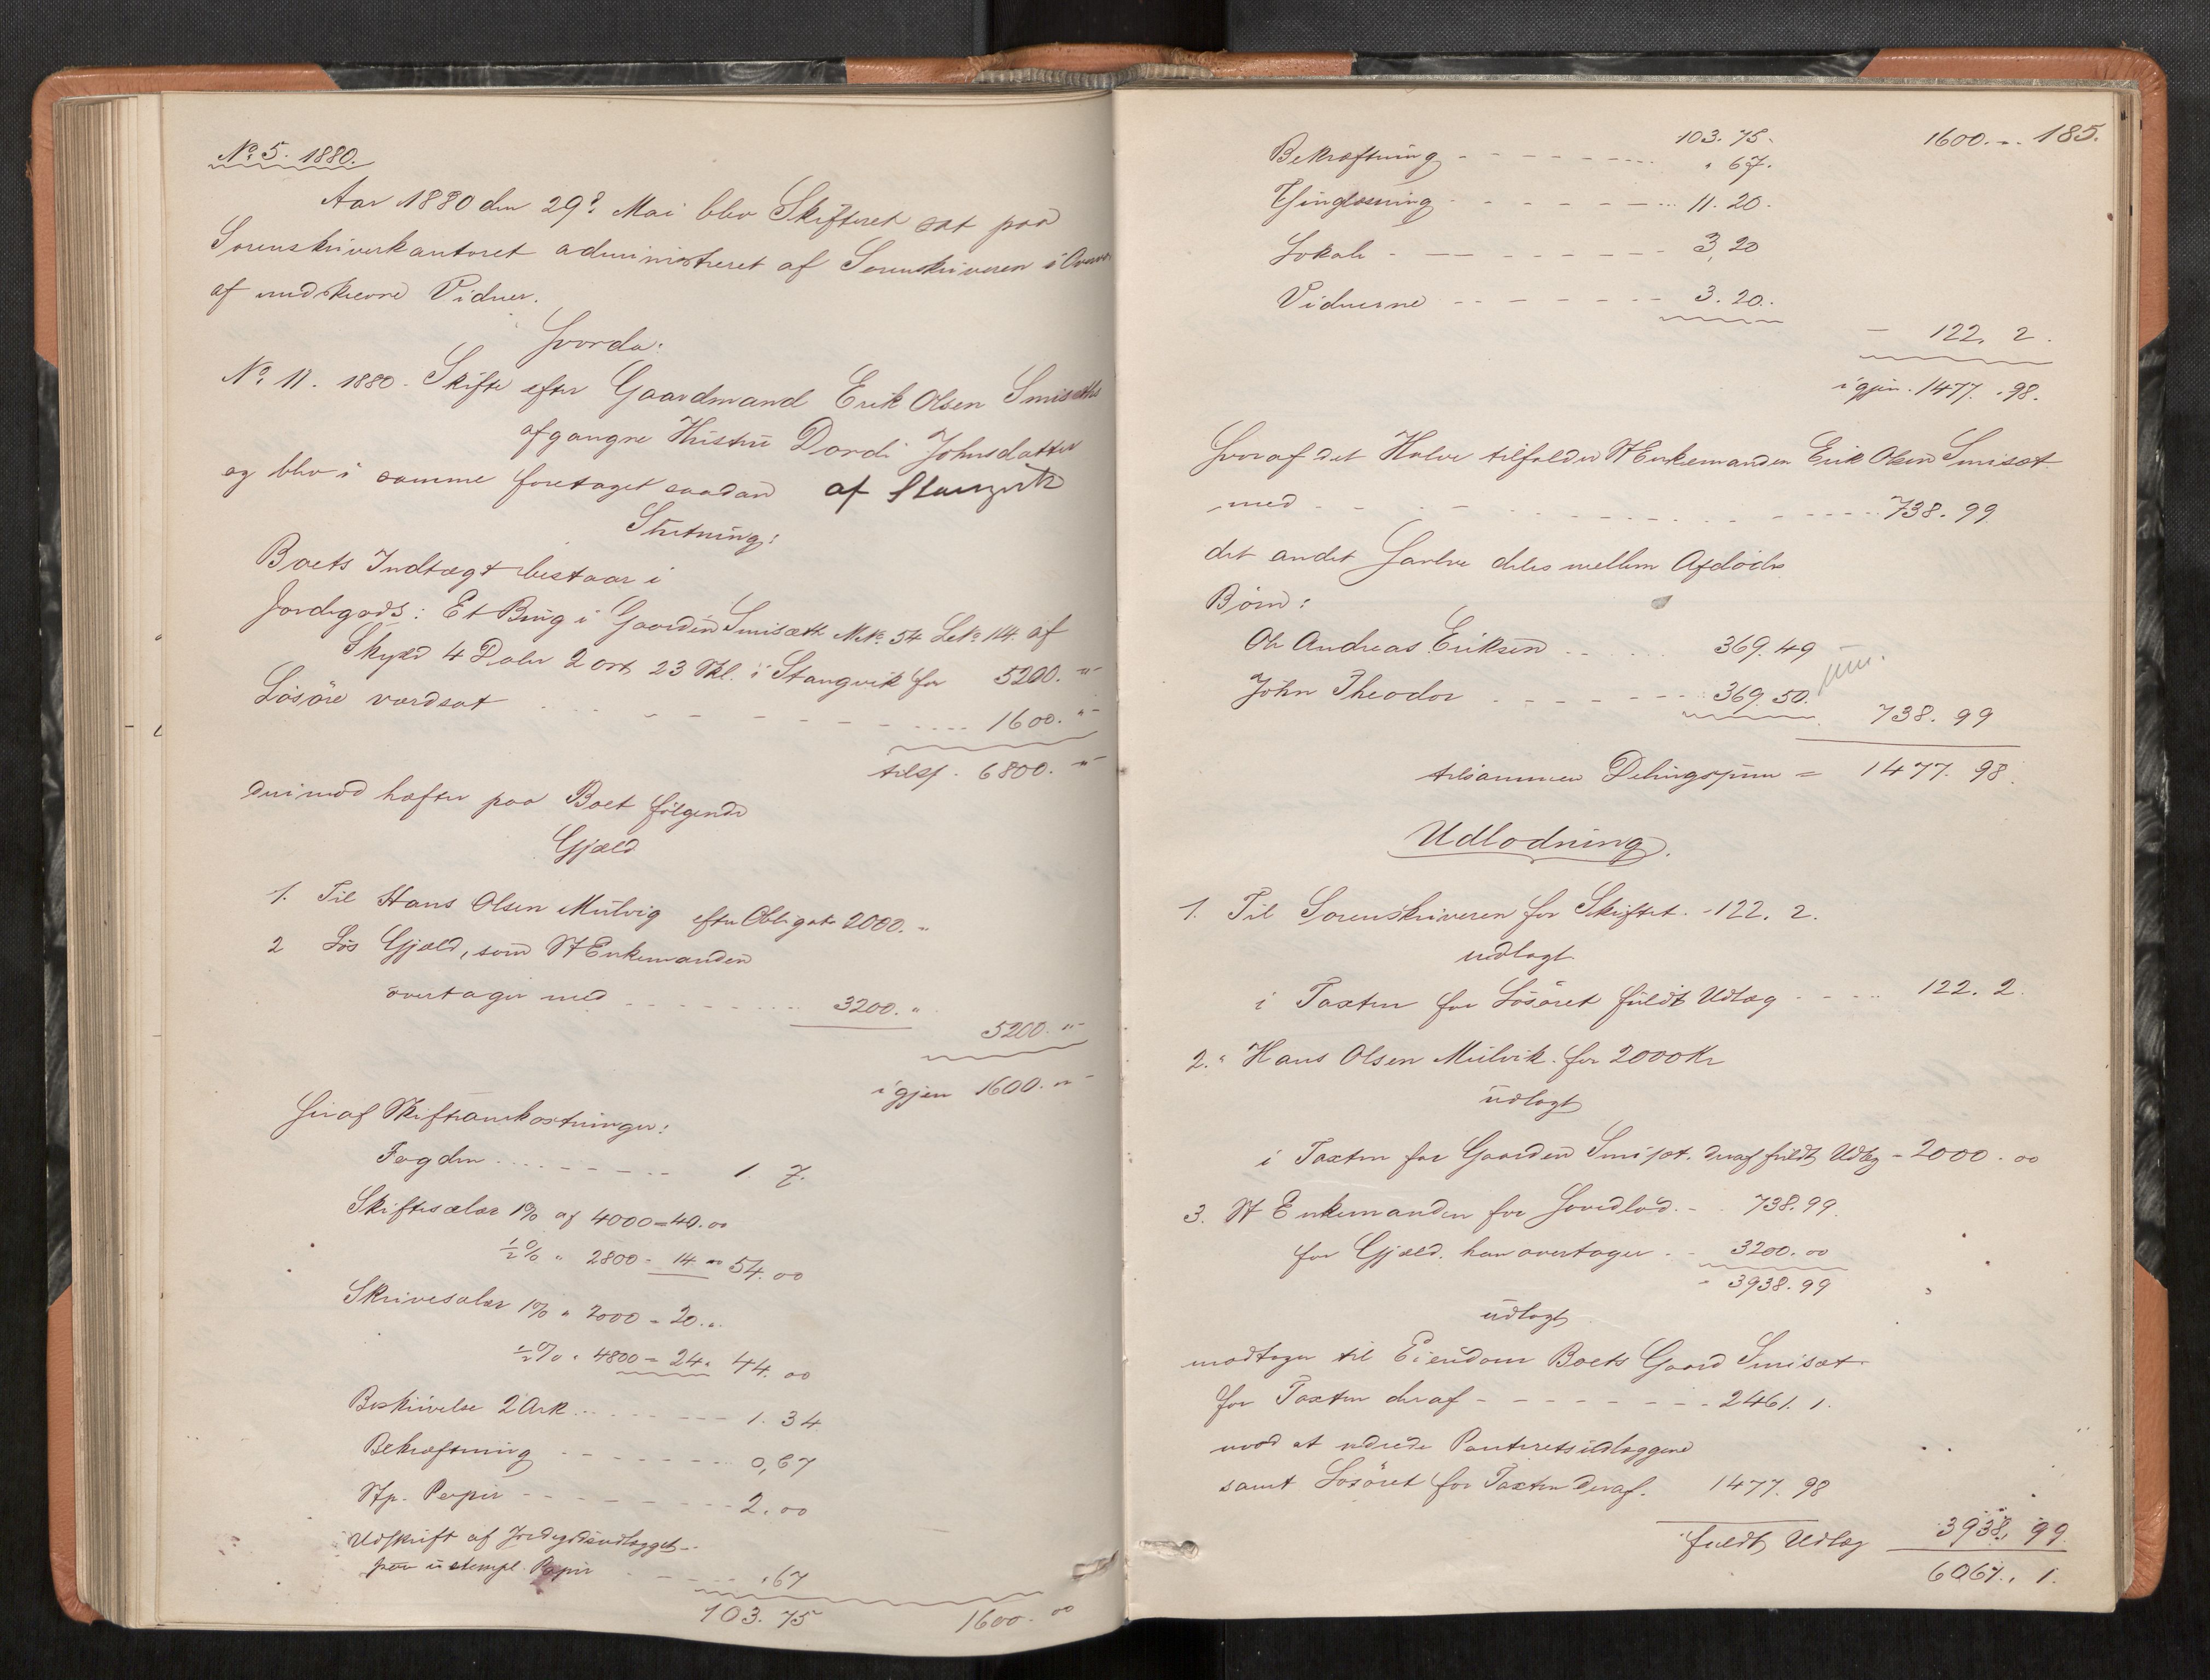 No 5. 1880.
Aar 1880 den 29de Mai blev Skifteret sat paa
Sorenskriverkontoret administreret af Sorenskriveren i Overvær
af undskrevne Vidner.
Hvorda:
No 11. 1880. Skifte efter Gaardmand Erik Olsen Smisæths
afgangne Hustru Dordi Johnsdatter
og blev i samme foretaget saadan af Stangvik
Slutning:
Boets Indtægt bestaar i
Jordegods: Et Brug i Gaarden Smisæth M.No. 54 L.No. 114. af
Skyld 4 Daler 2 ort 23 Skl. i Stangvik for 5200. "
Løsøre værdsat - - - 1600. "
tils. 6800. "
derimod hæfter paa Boet følgende
Gjæld
1. Til Hans Olsen Mulvig efter Obligat. 2000. "
2 Løs Gjæld, som St Enkemanden
overtager med - - - 3200. "
5200. "
igjen 1600. "
Heraf Skifteomkostninger:
Fogden - - - 1. 7.
Skiftesalær 1% af 4000 = 40.00
½ % " 2800 - 14. " 54.00
Skrivesalær 1% " 2000 = 20. "
½ % " 4800 = 24 " 44.00
Beskrivelse 2 Ark - - - 1. 34
Bekræftning - - - 0,67
Stp. Papir - - - 2.00
Udskrift af Jordegodsudlægget
paa ustempl. Papir - - - " 67
103. 75 1600. 00
185.
103. 75. 1600. -
Bekræftning - - - " 67.
Thinglæsning - - - 11. 20.
Lokale - - - 3,20
Vidnerne - - - 3. 20.
- 122. 2.
igjen. 1477. 98.
Hvoraf det Halve tilfalder St Enkemanden Erik Olsen Smisæt
med - - - 738. 99
det andet Halve deles mellem Afdødes
Børn:
Ole Andreas Eriksen - - - 369. 49
John Theodor - - - 369. 50. um.
738. 99
tilsammen Delingssum = 1477. 98.
Udlodning.
1. Til Sorenskriveren for Skiftet. - 122. 2.
udlagt
i Taxten for Løsøret fuldt Udlæg - - - 122. 2.
2. " Hans Olsen Mulvik. for 2000 Kr
udlagt
i Taxten for Gaarden Smisæt. deraf fuldt Udlæg - 2000. 00
3. St Enkemanden for Hovedlod. - 738. 99.
for Gjæld. han overtager - 3200. 00
3938. 99
udlagt
modtager til Eiendom Boets Gaard Smisæt
for Taxten deraf - - - 2461. 1.
mod at udrede Panteretsudlæggene
samt Løsøret for Taxten deraf. 1477. 98
fuldt Udlæg 3938. 99.
6061. 1.